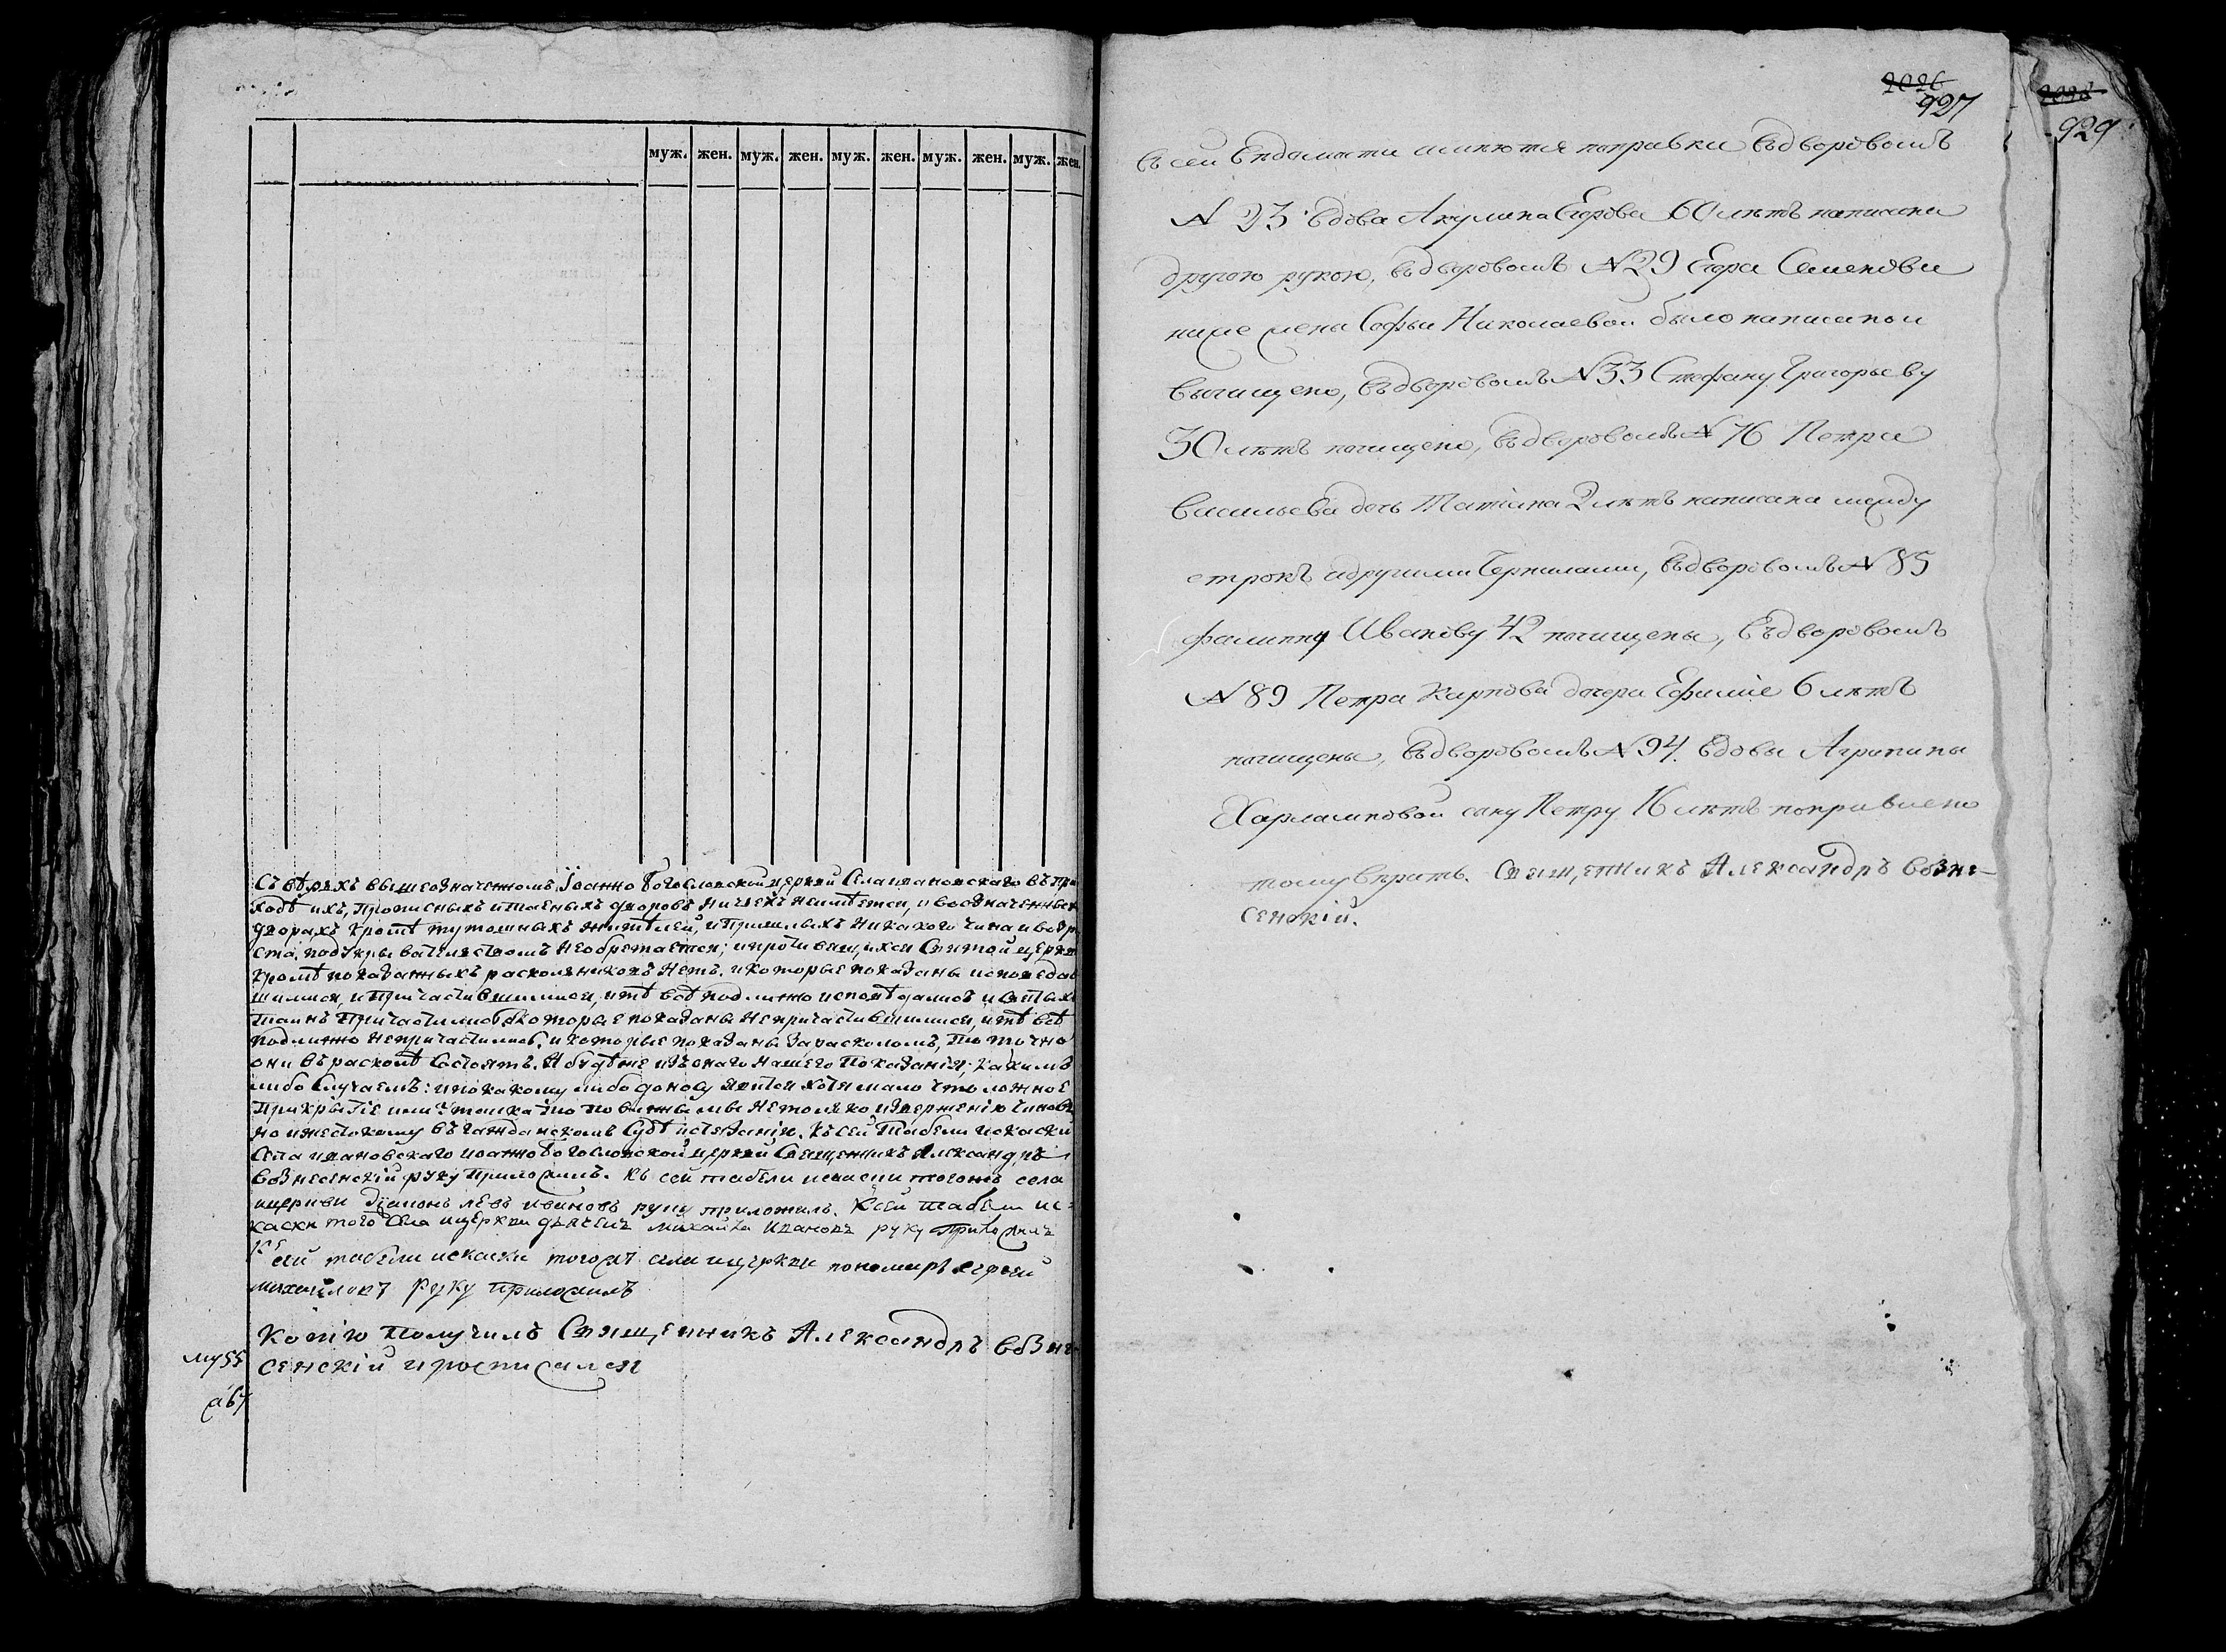 муж. жен. муж. жен. муж. жен. муж. жен. муж. жен.
вышеозначенномъ Іоанно Богословской церкви Села ивановскаго въ
ходѣ ихъ, прописныхъ и таеныхъ дворовъ ничьихъ неимѣется, и воозначенныхъ
дворахъ кромѣ тутошныхъ жителей, и пришлыхъ никакого чина и
подъ укрывательствомъ необретается; и противящихся Святой церкви
кромѣ показанныхъ раскольниковъ нетъ. и которые показаны исповедав
шимися, и причастившимися, и тѣ всѣ подлинно исповѣдались и святыхъ
таинъ причастились которые показаны непричастившимися, и тѣ всѣ
подлинно непричастились. и которые показаны за расколомъ, то точно
они въ расколѣ состоятъ. А буде же изъ онаго нашего показанія, какимъ
либо случаемъ: и по какому либо доносу явится хотя мало что ложное
прикрытіе или утайка то повинны мы нетолько извержению чиновъ
но и жестокому въ гажданскомъ Судѣ истезанію. Къ сей табели и скаски
Села ивановскаго иоанно Богословской церкви Священникъ Александръ
вознесенскій руку приложилъ. Къ сей табели искаски тогожъ села
ицеркви діаконъ левъ ивановъ руку приложилъ. Ксей табели ис-
каски того села ицеркви дьячекъ михайла ивановъ руку приложилъ
Къ сей табели искаски тогожъ села ицеркви пономарь сергей
михайловъ руку приложилъ
Копію получилъ Священникъ Александръ возне-
сенскій и росписался
му 55
2026
927
2028
929
В сей Ведомости имеются поправки въ дворовомъ
N 23 вдова Акулина Егорова 60 летъ написана
другою рукою, въ дворовомъ N 29 Егора Семенова
ниже жены Софьи Николаевой было написано и
вычищено, въ дворовомъ N 33 Стефану Григорьеву
30 летъ почищено, въ дворовомъ N 76 Петра
Васильева дочь Татіана 2 летъ написана между
строкъ и другими чернилами, въ дворовомъ N 85
Филиппу Иванову 42 почищены, въ дворовомъ
N 89 Петра Карпова дочери Ефиміе 6 летъ
почищены, въ дворовомъ N 94 вдовы Агрипины
Харлампіевой сыну Петру 16 летъ поправлено
тому верить. Священникъ Александръ возне-
сенскій.